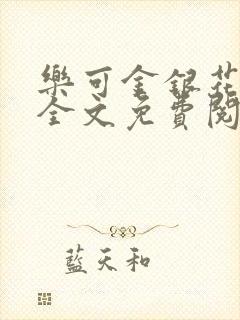 樂可金銀花
全文免費閱
藍天和